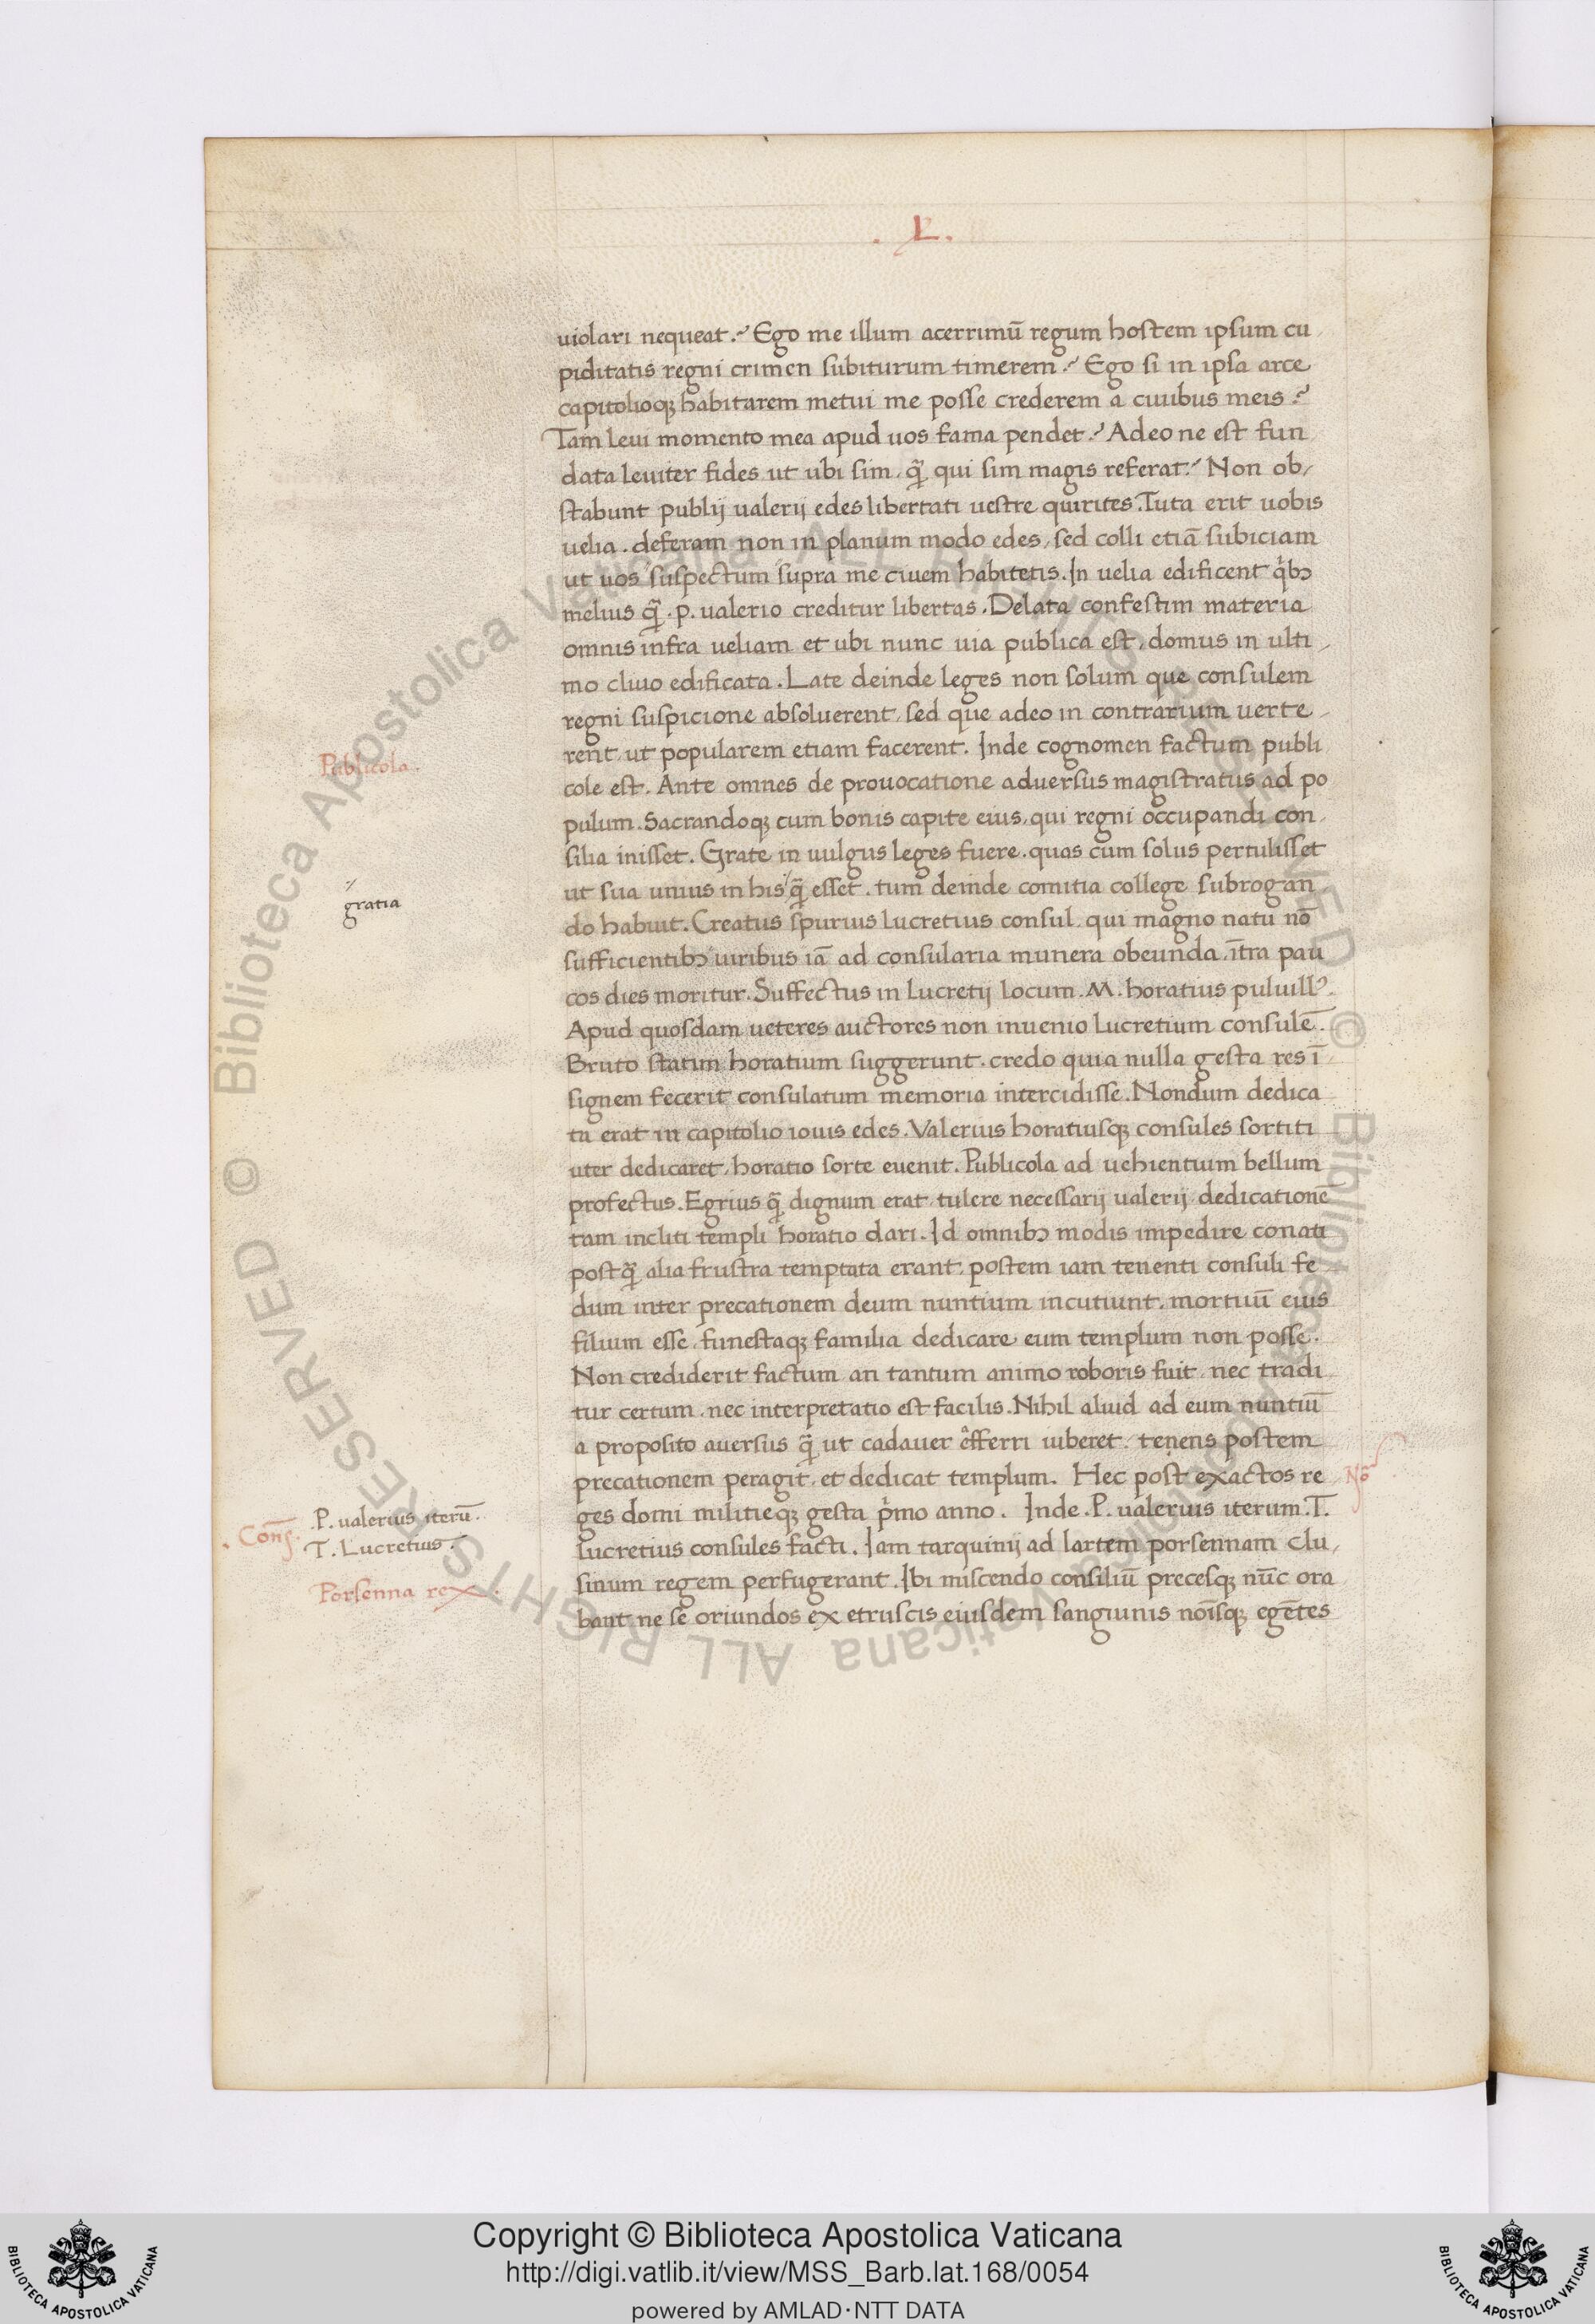 .L.
uiolari nequeat.? Ego me illum acerrimū regum hostem ipsum cu
piditatis regni crimen subiturum timerem? Ego si in ipsa arce
capitolioqꝫ habitarem metui me posse crederem a ciuibus meis?
Tam leui momento mea apud uos fama pendet? Adeo ne est fun
data leuiter fides ut ubi sim, q̃ qui sim magis referat? Non ob/
stabunt publij ualerij edes libertati uestre quirites. Tuta erit uobis
uelia. deferam non in planum modo edes, sed colli etiā subiciam
ut uos suspectum supra me ciuem habitetis. In uelia edificent q̇bꝫ
melius q̃ .p. ualerio creditur libertas. Delata confestim materia
omnis infra ueliam et ubi nunc uia publica est, domus in ulti
mo cliuo edificata. Late deinde leges non solum que consulem
regni suspicione absoluerent, sed que adeo in contrarium uerte
rent, ut popularem etiam facerent. Inde cognomen factum publi
Publicola.
cole est. Ante omnes de prouocatione aduersus magistratus ad po
pulum. Sacrandoqꝫ cum bonis capite eius, qui regni occupandi con
silia inisset. Grate in uulgus leges fuere. quas cum solus pertulisset
ut sua unius in his q̃ esset. tum deinde comitia college subrogan
gratia
do habuit. Creatus spurius lucretius consul qui magno natu nō
sufficientibꝫ uiribus iā ad consularia munera obeunda, ītra pau
cos dies moritur. Suffectus in lucretij locum .M. horatius puluillꝰ.
Apud quosdam ueteres auctores non inuenio lucretium consulē.
Bruto statim horatium suggerunt. credo quia nulla gesta res ī
signem fecerit consulatum memoria intercidisse. Nondum dedica
ta erat in capitolio iouis edes. Valerius horatiusqꝫ consules sortiti
uter dedicaret, horatio sorte euenit. Publicola ad uehientium bellum
profectus. Egrius q̃ dignum erat tulere necessarij ualerij dedicationē
tam incliti templi horatio dari. Id omnibꝫ modis impedire conati
postq̃ alia frustra temptata erant, postem iam tenenti consuli fe
dum inter precationem deum nuntium incutiunt, mortuū eius
filium esse, funestaqꝫ familia dedicare eum templum non posse.
Non crediderit factum an tantum animo roboris fuit nec tradi
tur certum, nec interpretatio est facilis. Nihil aliud ad eum nuntiū
a proposito auersus q̃ ut cadauer efferri iuberet, tenens postem
precationem peragit, et dedicat templum. Hec post exactos re
Nō
ges domi militieqꝫ gesta ṗmo anno. Inde .P. ualerius iterum .T.
.Conſ. .P. ualerius iterū.
T. Lucretius.
lucretius consules facti. Iam tarquinij ad lartem porsennam clu
sinum regem perfugerant. Ibi miscendo consiliū precesqꝫ nūc ora
Porsenna rex.
bant ne se oriundos ex etruscis eiusdem sangiunis noīsqꝫ egētes
Biblioteca Apostolica Vaticana ALL RIGHTS RESERVED ©
Biblioteca Apostolica Vaticana ALL RIGHTS RESERVED ©
BIBLIOTECA APOSTOLICA VATICANA
Copyright © Biblioteca Apostolica Vaticana
http://digi.vatlib.it/view/MSS_Barb.lat.168/0054
powered by AMLAD·NTT DATA
BIBLIOTECA APOSTOLICA VATICANA